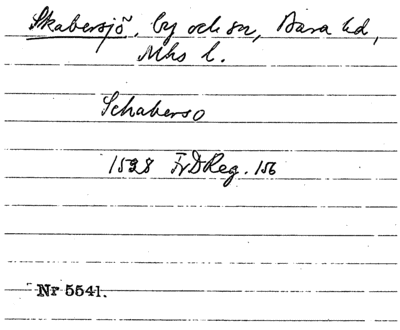 Skabersjö, by och sn, Bara hd,
Mhs l.
Schaberso
1528 FrDReg. 156
Nr 5541.